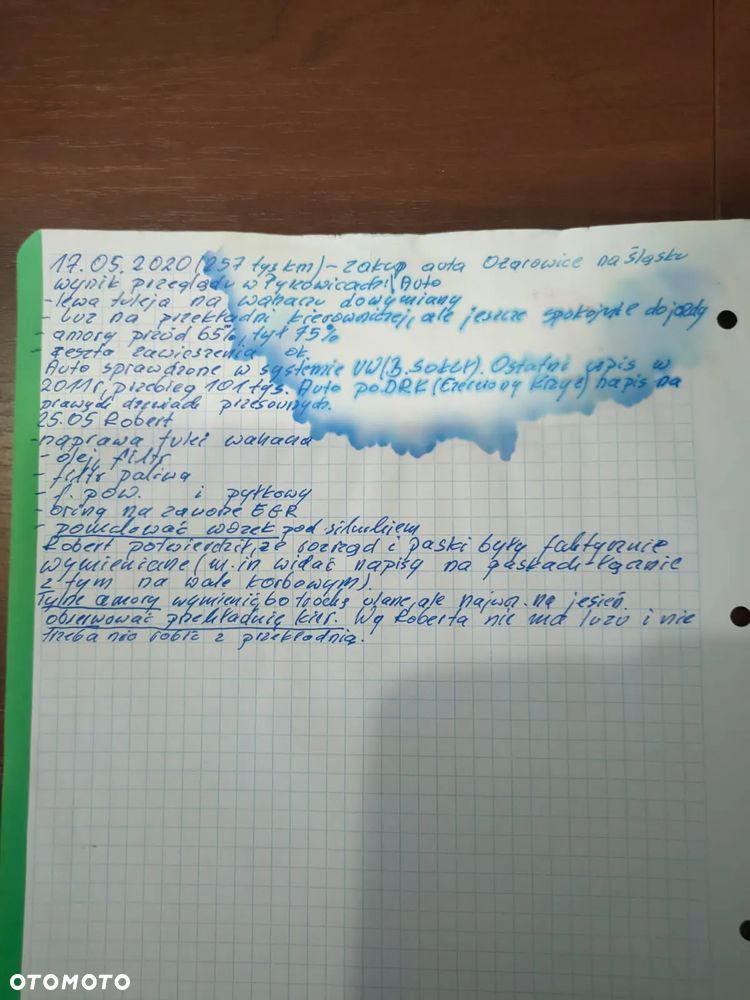 17.05.2020 (257 tys km) - zakup auta Ożarowice na Śląsku
wynik przeglądu w Pyrzowicach Auto
- lewa tuleja na wahaczu do wymiany
- luz na przekładni kierowniczej, ale jeszcze spokojnie do jazdy
- amory przód 65%, tył 75%
- reszta zawieszenia ok
Auto sprawdzone w systemie VW (B. Sokół). Ostatni wpis w
2011 r, przebieg 101 tys. Auto po DRK (Czerwony Krzyż) napis na
prawych drzwiach przesównych.
25.05 Robert
- naprawa tulei wahacza
- olej, filtr
- filtr paliwa
- f. pow. i pyłkowy
- oring na zavorze EGR
- pomalować worek pod silnikiem
Robert potwierdził, że rozrząd i paski były faktycznie
wymieniane (m.in widać napisy na paskach łącznie
z tym na wale korbowym).
Tylne amory wymienić, bo trochę ulane, ale najwcz. na jesień.
obserwować przekładnię kier. Wg Roberta nie ma luzu i nie
trzeba nic robić z przekładnią.
OTOMOTO